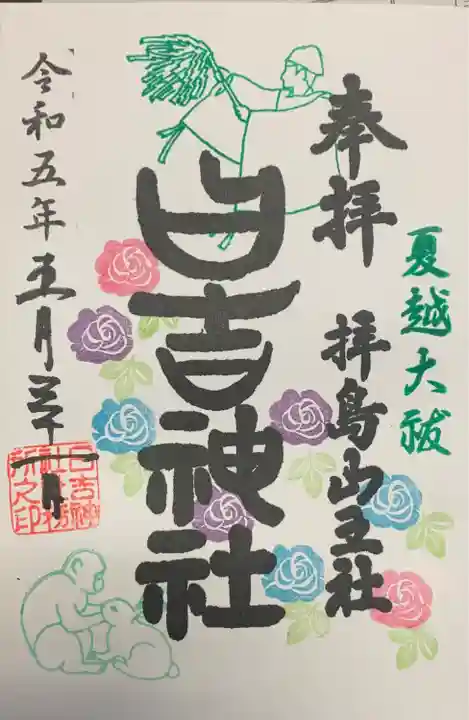 夏越大祓
奉拝
拝島山王社
日吉神社
令和五年五月三十一日
日吉神
社社務
所之印